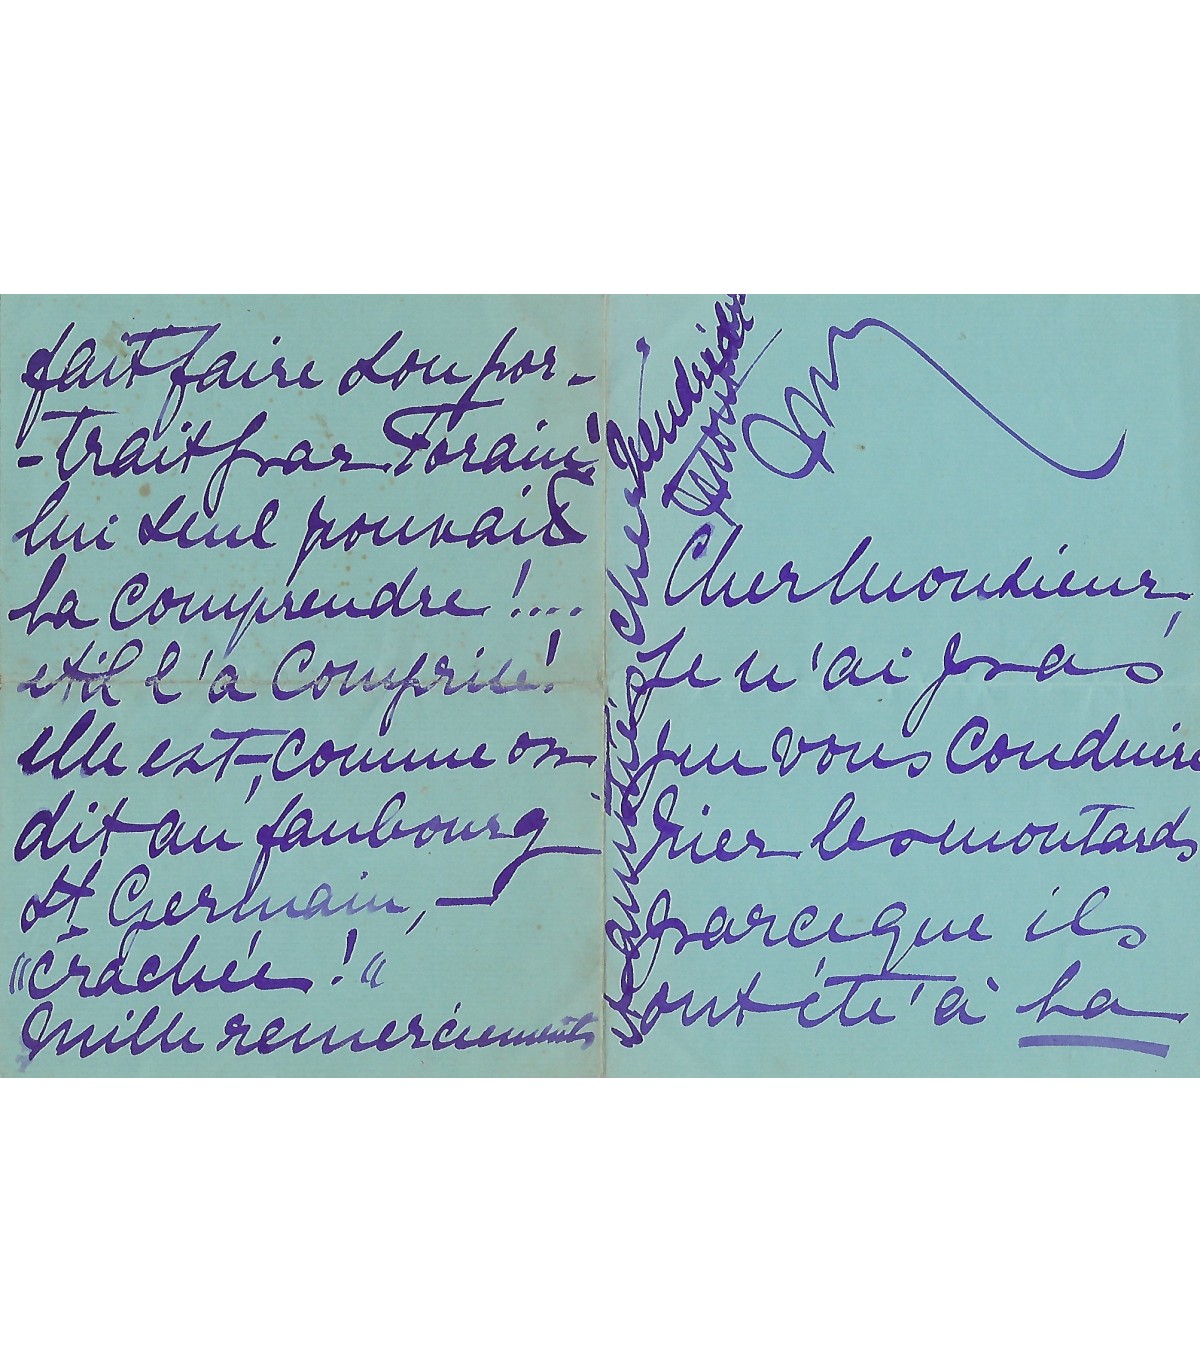 Vendredi
Cher Monsieur,
Je n'ai pas
pu vous conduire
hier les moutards
parceque ils
ont été à La
fait faire son por-
-trait par Forain!
lui seul pouvait
La Comprendre!....
et il l'a Comprise!
elle est, comme on
dit au faubourg
St Germain, —
"crachée!"
Mille remerciements